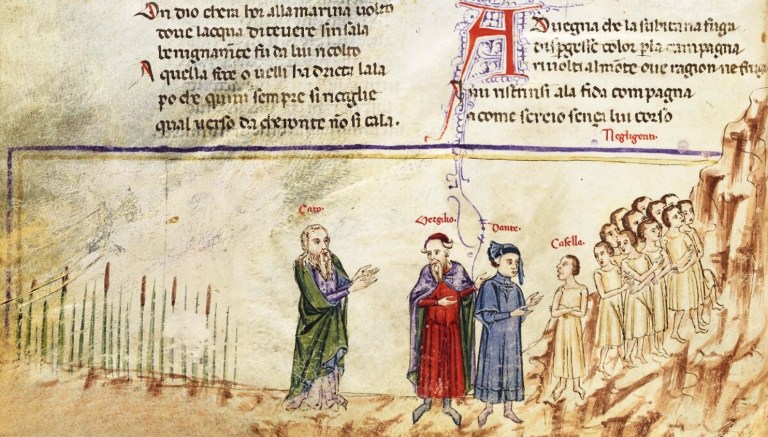 On dio chera hor alla marina uolto
doue lacqua diteuere sin sala
benignam̄te fu da lui ricolto
A quella foce o uelli ha dricta lala
po che quiui sempre si ricoglie
qual verso da cheronte nō si cala.
A Duegna che la subitana fuga
dispgesse color pla campagna
riuolti al mōte oue ragion ne fruga
mi ristrinsi ala fida compagna
come sereio sença lui corso
Negligenti.
Cato.
Vergilio.
Dante.
Casella.